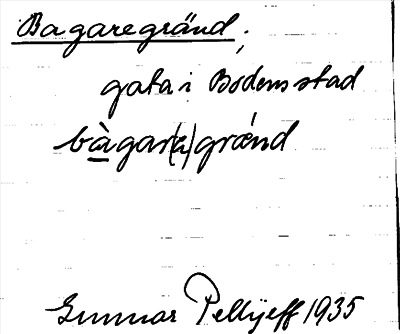 Bagaregränd,
gata i Bodens stad
bàgar(a)grǽnd
Gunnar Pellijeff 1935